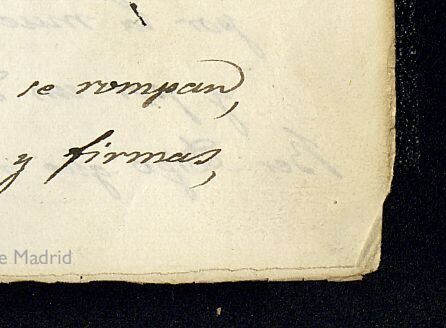 se rompan,
y firmas,
e Madrid